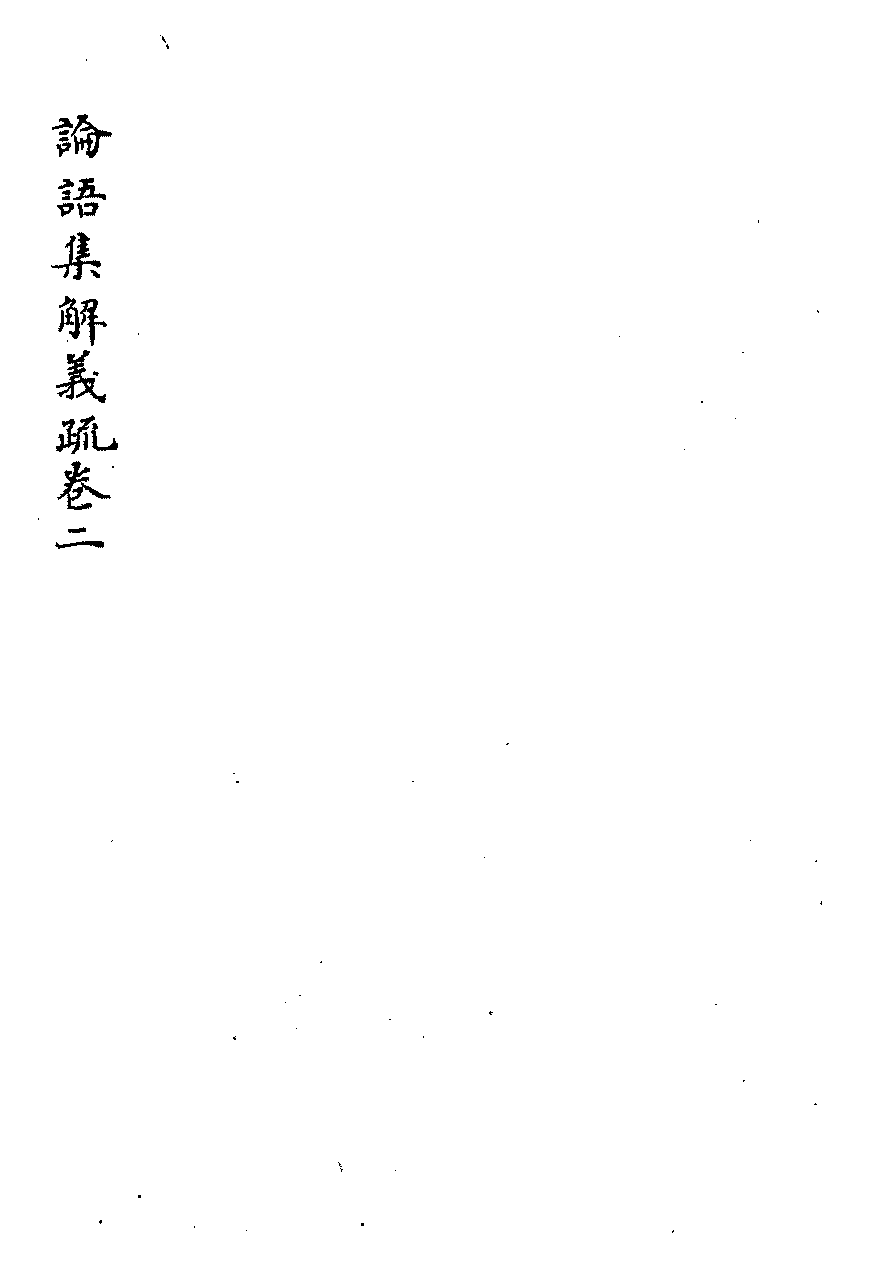 論語集解義疏卷二